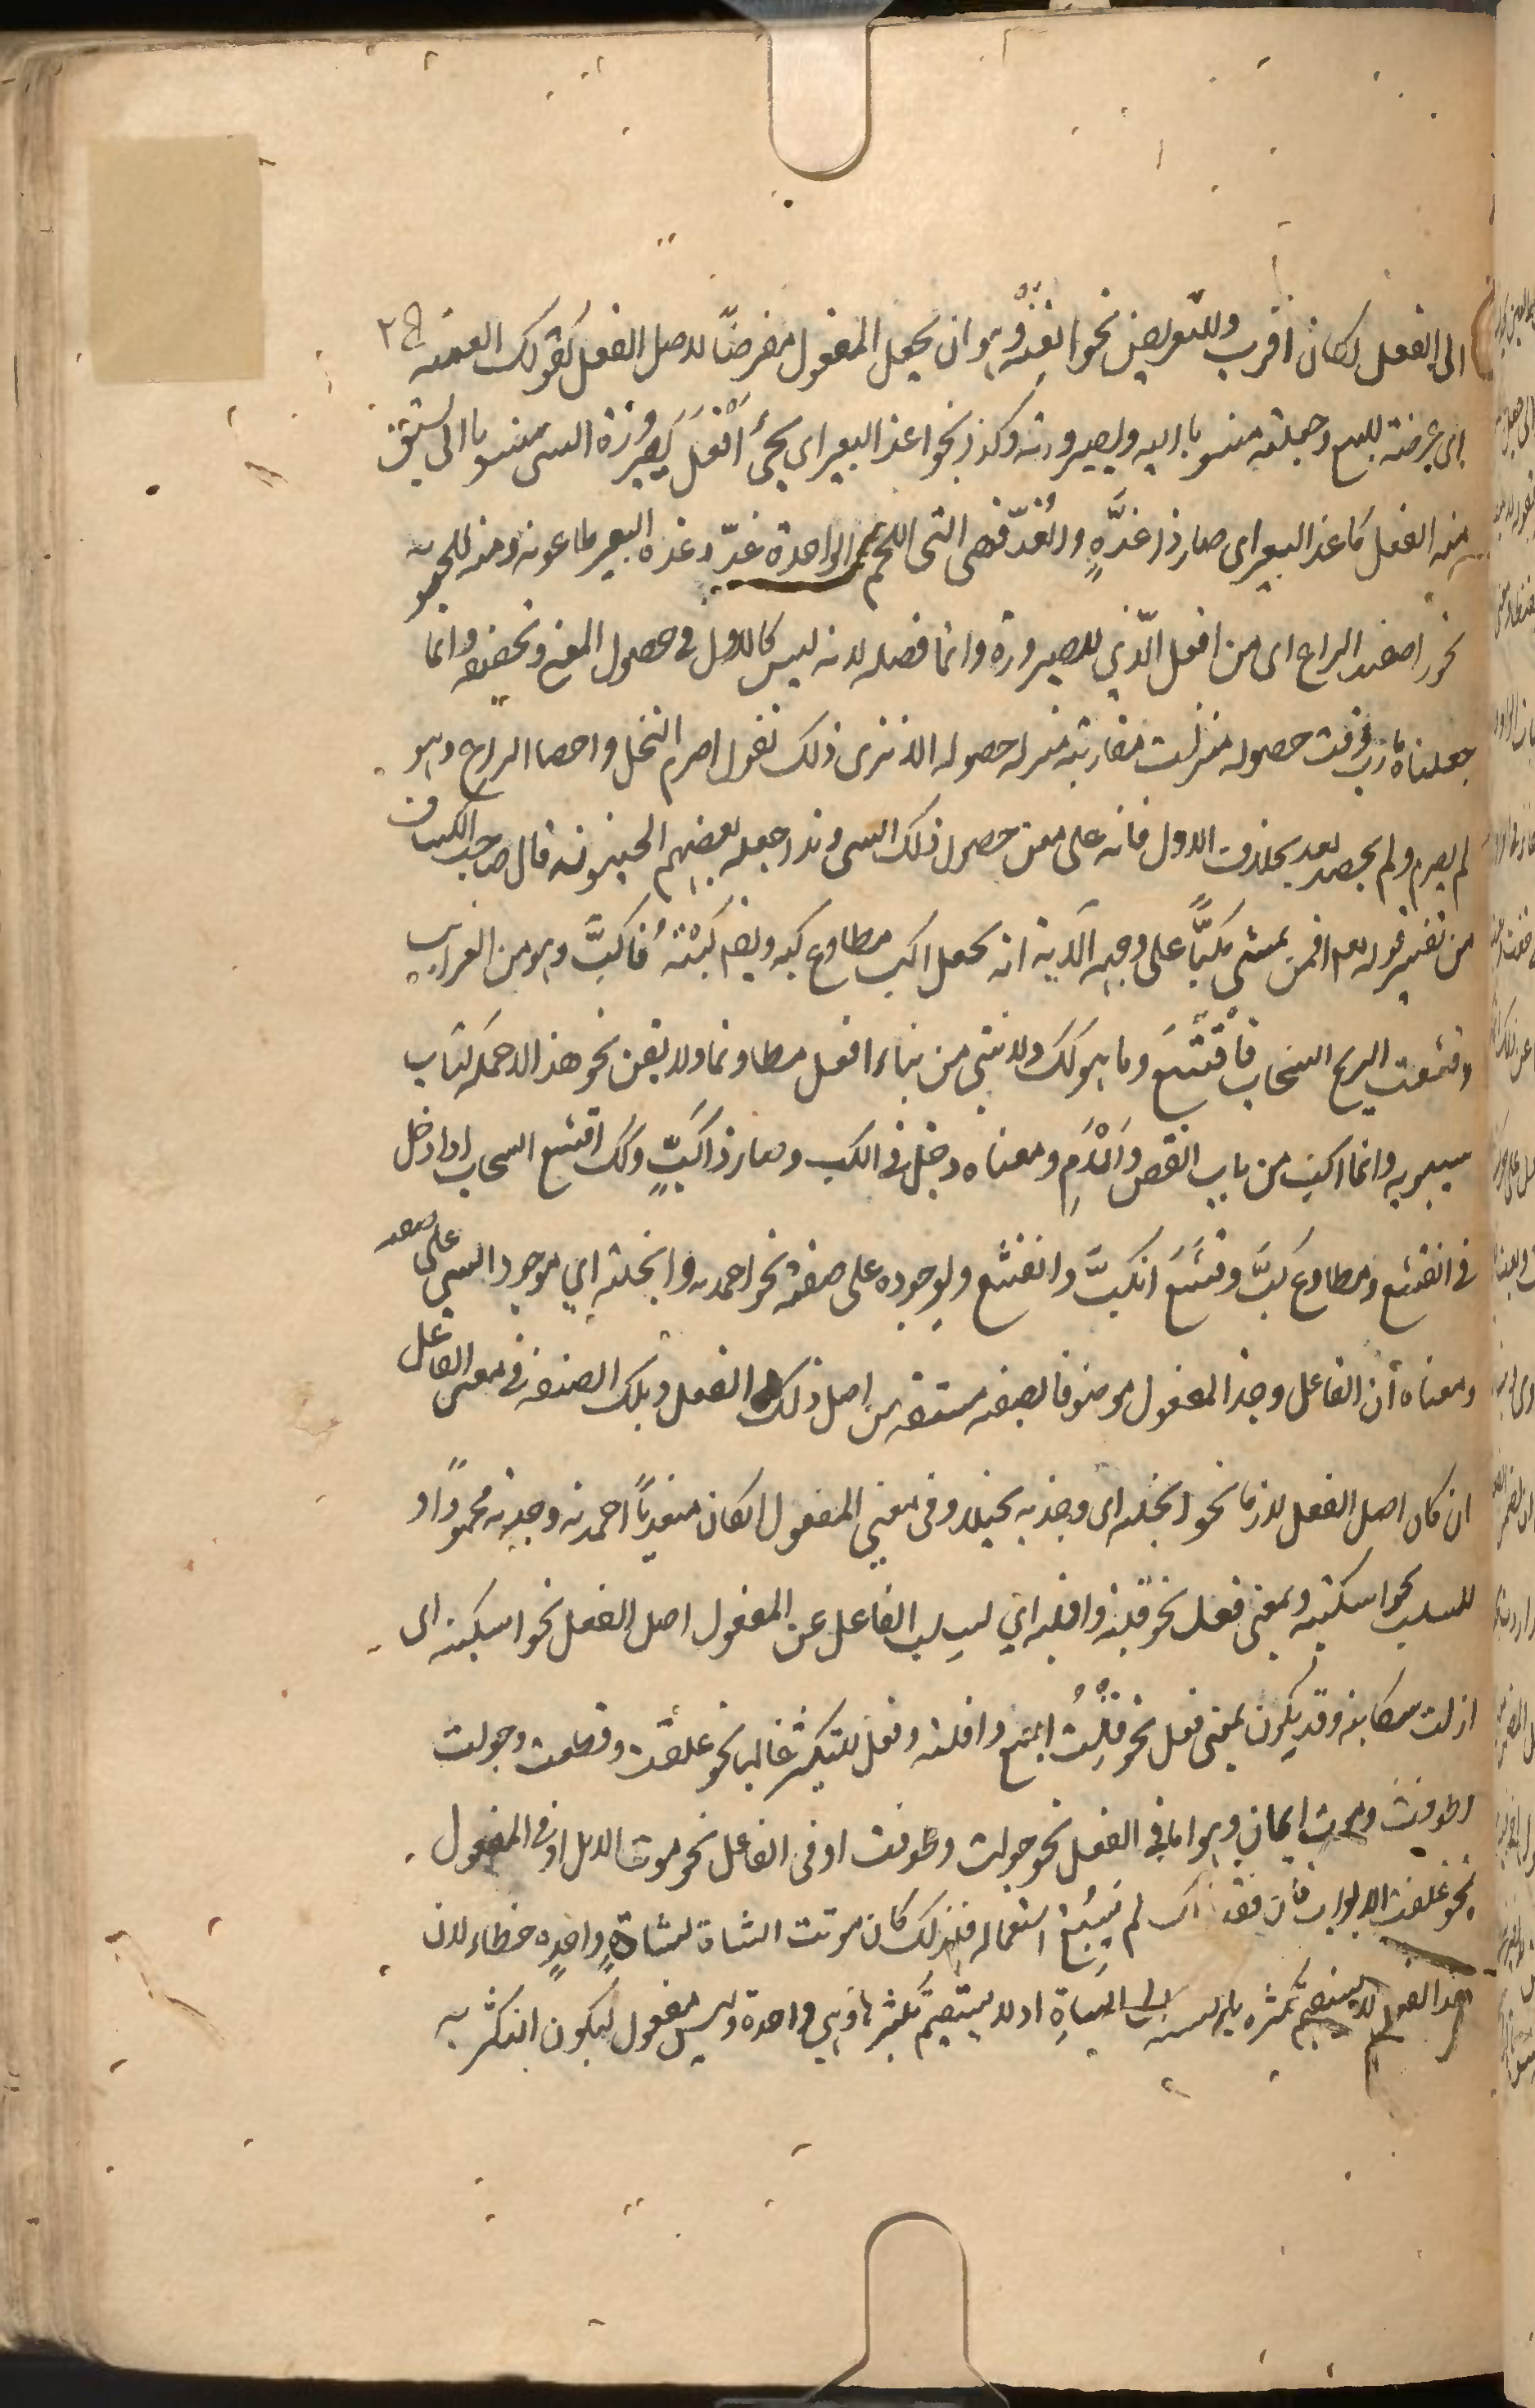 الى الفعل لكان اقرب وللتعريض نحو ابعته وهو ان يجعل المفعول معرضا لاصل الفعل كقولك ابعته
اى عرضته للبيع وجعلته منسوبا اليه ولصيرورته وكذا نحو اغد البعير اى يجئ افعل لصيرورة الشى منسوبا الى ما اشتق
منه الفعل كاغد البعير اى صار ذا غدة والغدة فهى التى اللحم الواحدة غدة وغدة البعير طاعونه ومنه
نحو احصد الزرع اى من افعل الذي للصيرورة وانما فصله لانه ليس كالاول فى حصول المعنى وتحقيقه وانما
جعلناه قارب وقت حصوله منزلت مقاربته منزلة حصوله الا ترى ذلك تقول اصرم النخل واحصد الزرع وهو
لم يصرم ولم يحصد بعد بخلاف الاول فانه على معنى حصول ذلك الشى وقد جعله بعضهم الحينونة قال صاحب الكشاف
من تفسير قوله تع افمن يمشي مكبا على وجهه الآية انه يجعل اكب مطاوع كبه ويقه كببته فاكب وهو من الغرايب
وقشعت الريح السحاب فاقشع وما هو كك ولا شئ من بناء افعل مطاوعا ولا يتقن نحو هذا الا حملة كتاب
سيبويه وانما اكب من باب انفض والام ومعناه دخل فى الكب وصار ذا كب وكك اقشع السحاب اذا دخل
فى القشع ومطاوع كب وقشع انكب وانقشع ولوجوده على صفة نحو احمدته وابخلته اي لوجود الشى على صفة
ومعناه ان الفاعل وجد المفعول موصوفا بصفة مشتقة من اصل ذلك الفعل وتلك الصفة فى معنى الفاعل
ان كان اصل الفعل لازما نحو ابخلته اى وجدته بخيلا وفى معنى المفعول ان كان متعديا احمدته وجدته محمودا و
للسلب نحو اشكيته وبمعنى فعل نحو قلته واقلته اي لسلب الفاعل عن المفعول اصل الفعل نحو اشكيته اى
ازلت شكايته وقد يكون بمعنى فعل نحو قلت البيع واقلته وفعل للتكثير غالبا نحو غلقت وقطعت وجولت
وطوفت وموت المال وهو اما فى الفعل نحو جولت وطوفت او فى الفاعل نحو موت الابل او فى المفعول
نحو غلقت الابواب فان فقد ذلك لم يسغ استعماله فلذلك كان موتت الشاة لشاة واحدة خطاء لان
هذا الفعل لا يستقيم تكثيره بالنسبة الى الشاة اذ لا يستقيم تكثيرها وهى واحدة وليس مفعول ليكون التكثير به